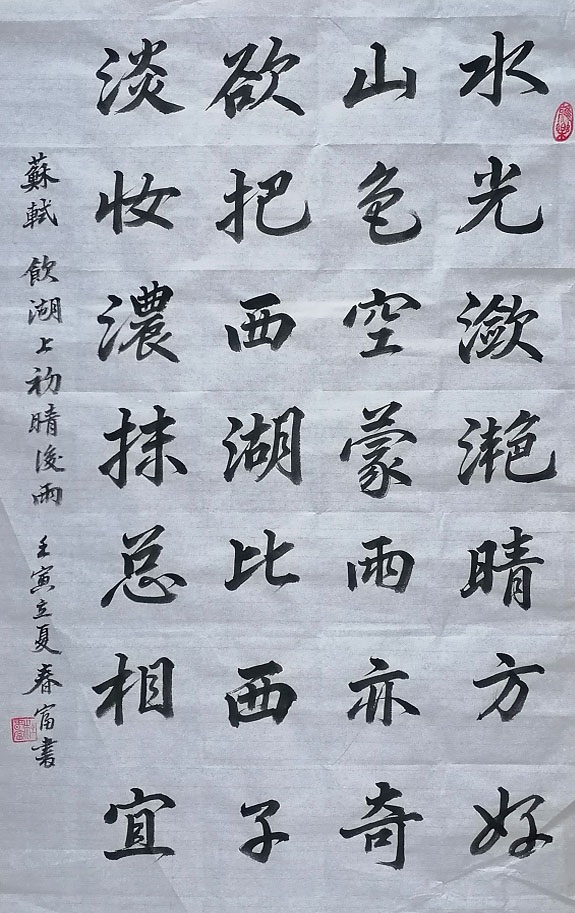 水光瀲滟晴方好
山色空蒙雨亦奇
欲把西湖比西子
淡妝濃抹总相宜
蘇軾 飲湖上初晴後雨 壬寅立夏春富書